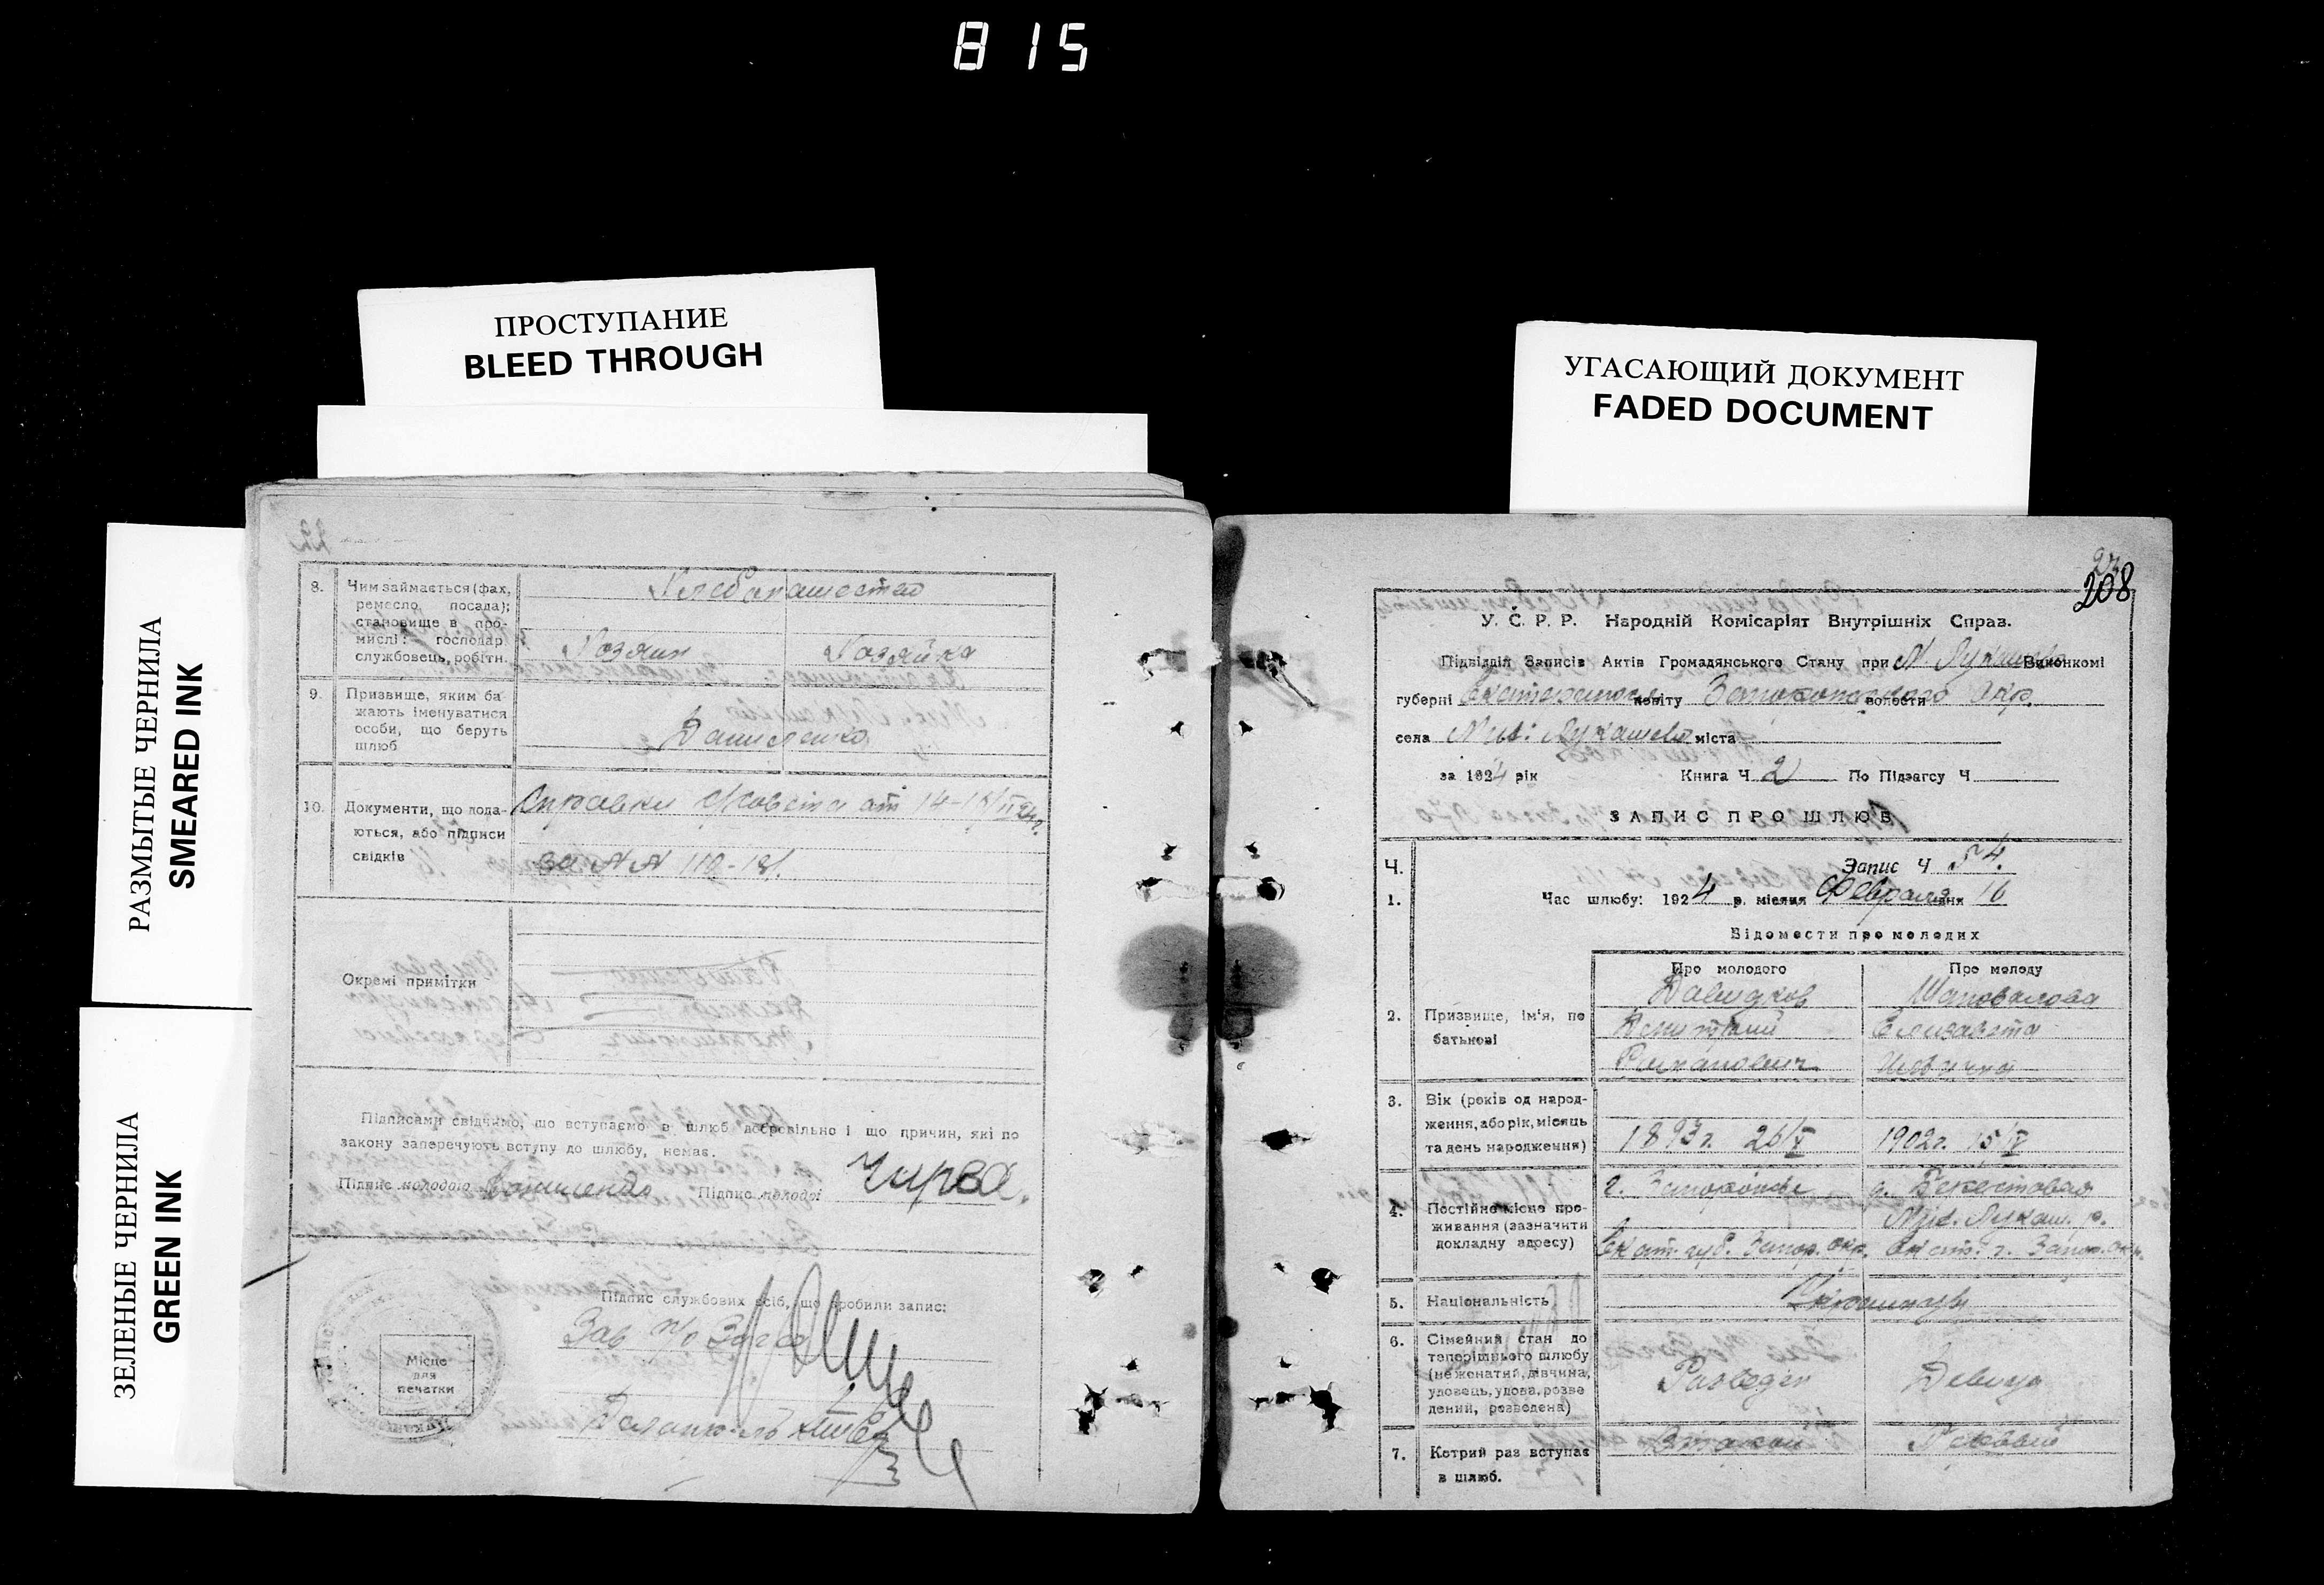 815
ПРОСТУПАНИЕ
BLEED THROUGH
УГАСАЮЩИЙ ДОКУМЕНТ
FADED DOCUMENT
РАЗМЫТЫЕ ЧЕРНИЛА
SMEARED INK
ЗЕЛЕНЫЕ ЧЕРНИЛА
GREEN INK
8. Чим займається (фах, ремесло, посада); становище в промислі: господар службовець, робітн.
Хлебопашество
Хозяин Хозяйка
9. Призвище, яким ба-
жають іменуватися
особи, що беруть
шлюб
Даниленко
10. Документи, що пода-
ються, або підписи
свідків
Справки от 14-
за №№ 110-
Окремі примітки
Підписами свідчимо, що вступаємо в шлюб добровільно і що причин, які по
закону заперечують вступу до шлюбу, немає.
Підпис молодого Даниленко Підпис молодої Чирва.
Підпис службових осіб, що зробили запис:
Зав п/о Загса
Місце
для
печатки
Делопр-ль
23
208
У. С. Р. Р. Народній Комісаріят Внутрішніх Справ.
Підвідділ Записів Актів Громадянського Стану при Н Лукашев Виконкомі
губерні Екатеринослав повіту Запорожского волости Окр.
села Лукашево міста
за 1924 рік Книга Ч. 2 По Підзагсу Ч.
ЗАПИС ПРО ШЛЮБ
Ч. Запис Ч 4.
1. Час шлюбу: 1924 р. місяця Февраля дня 16
Відомости про молодих
Про молодого Про молоду
2. Призвище, ім'я, по
батькові
Давидков Шаповалова
Елизавета
Романович
3. Вік (років од народ-
ження, або рік, місяць
та день народження)
1893г. 26/V 1902г. 15/IV
4. Постійне місце про-
живання (зазначити
докладну адресу)
г. Запорожье д.
Лукаш. р.
Екат. губ. Запор. окр. Екат. г. Запор. окр.
5. Національність
Украинцы
6. Сімейний стан до
теперішнього шлюбу
(нежонатий, дівчина,
удовець, удова, розве
дений, розведена)
Разведен Девица
7. Котрий раз вступає
в шлюб.
Второй Первый